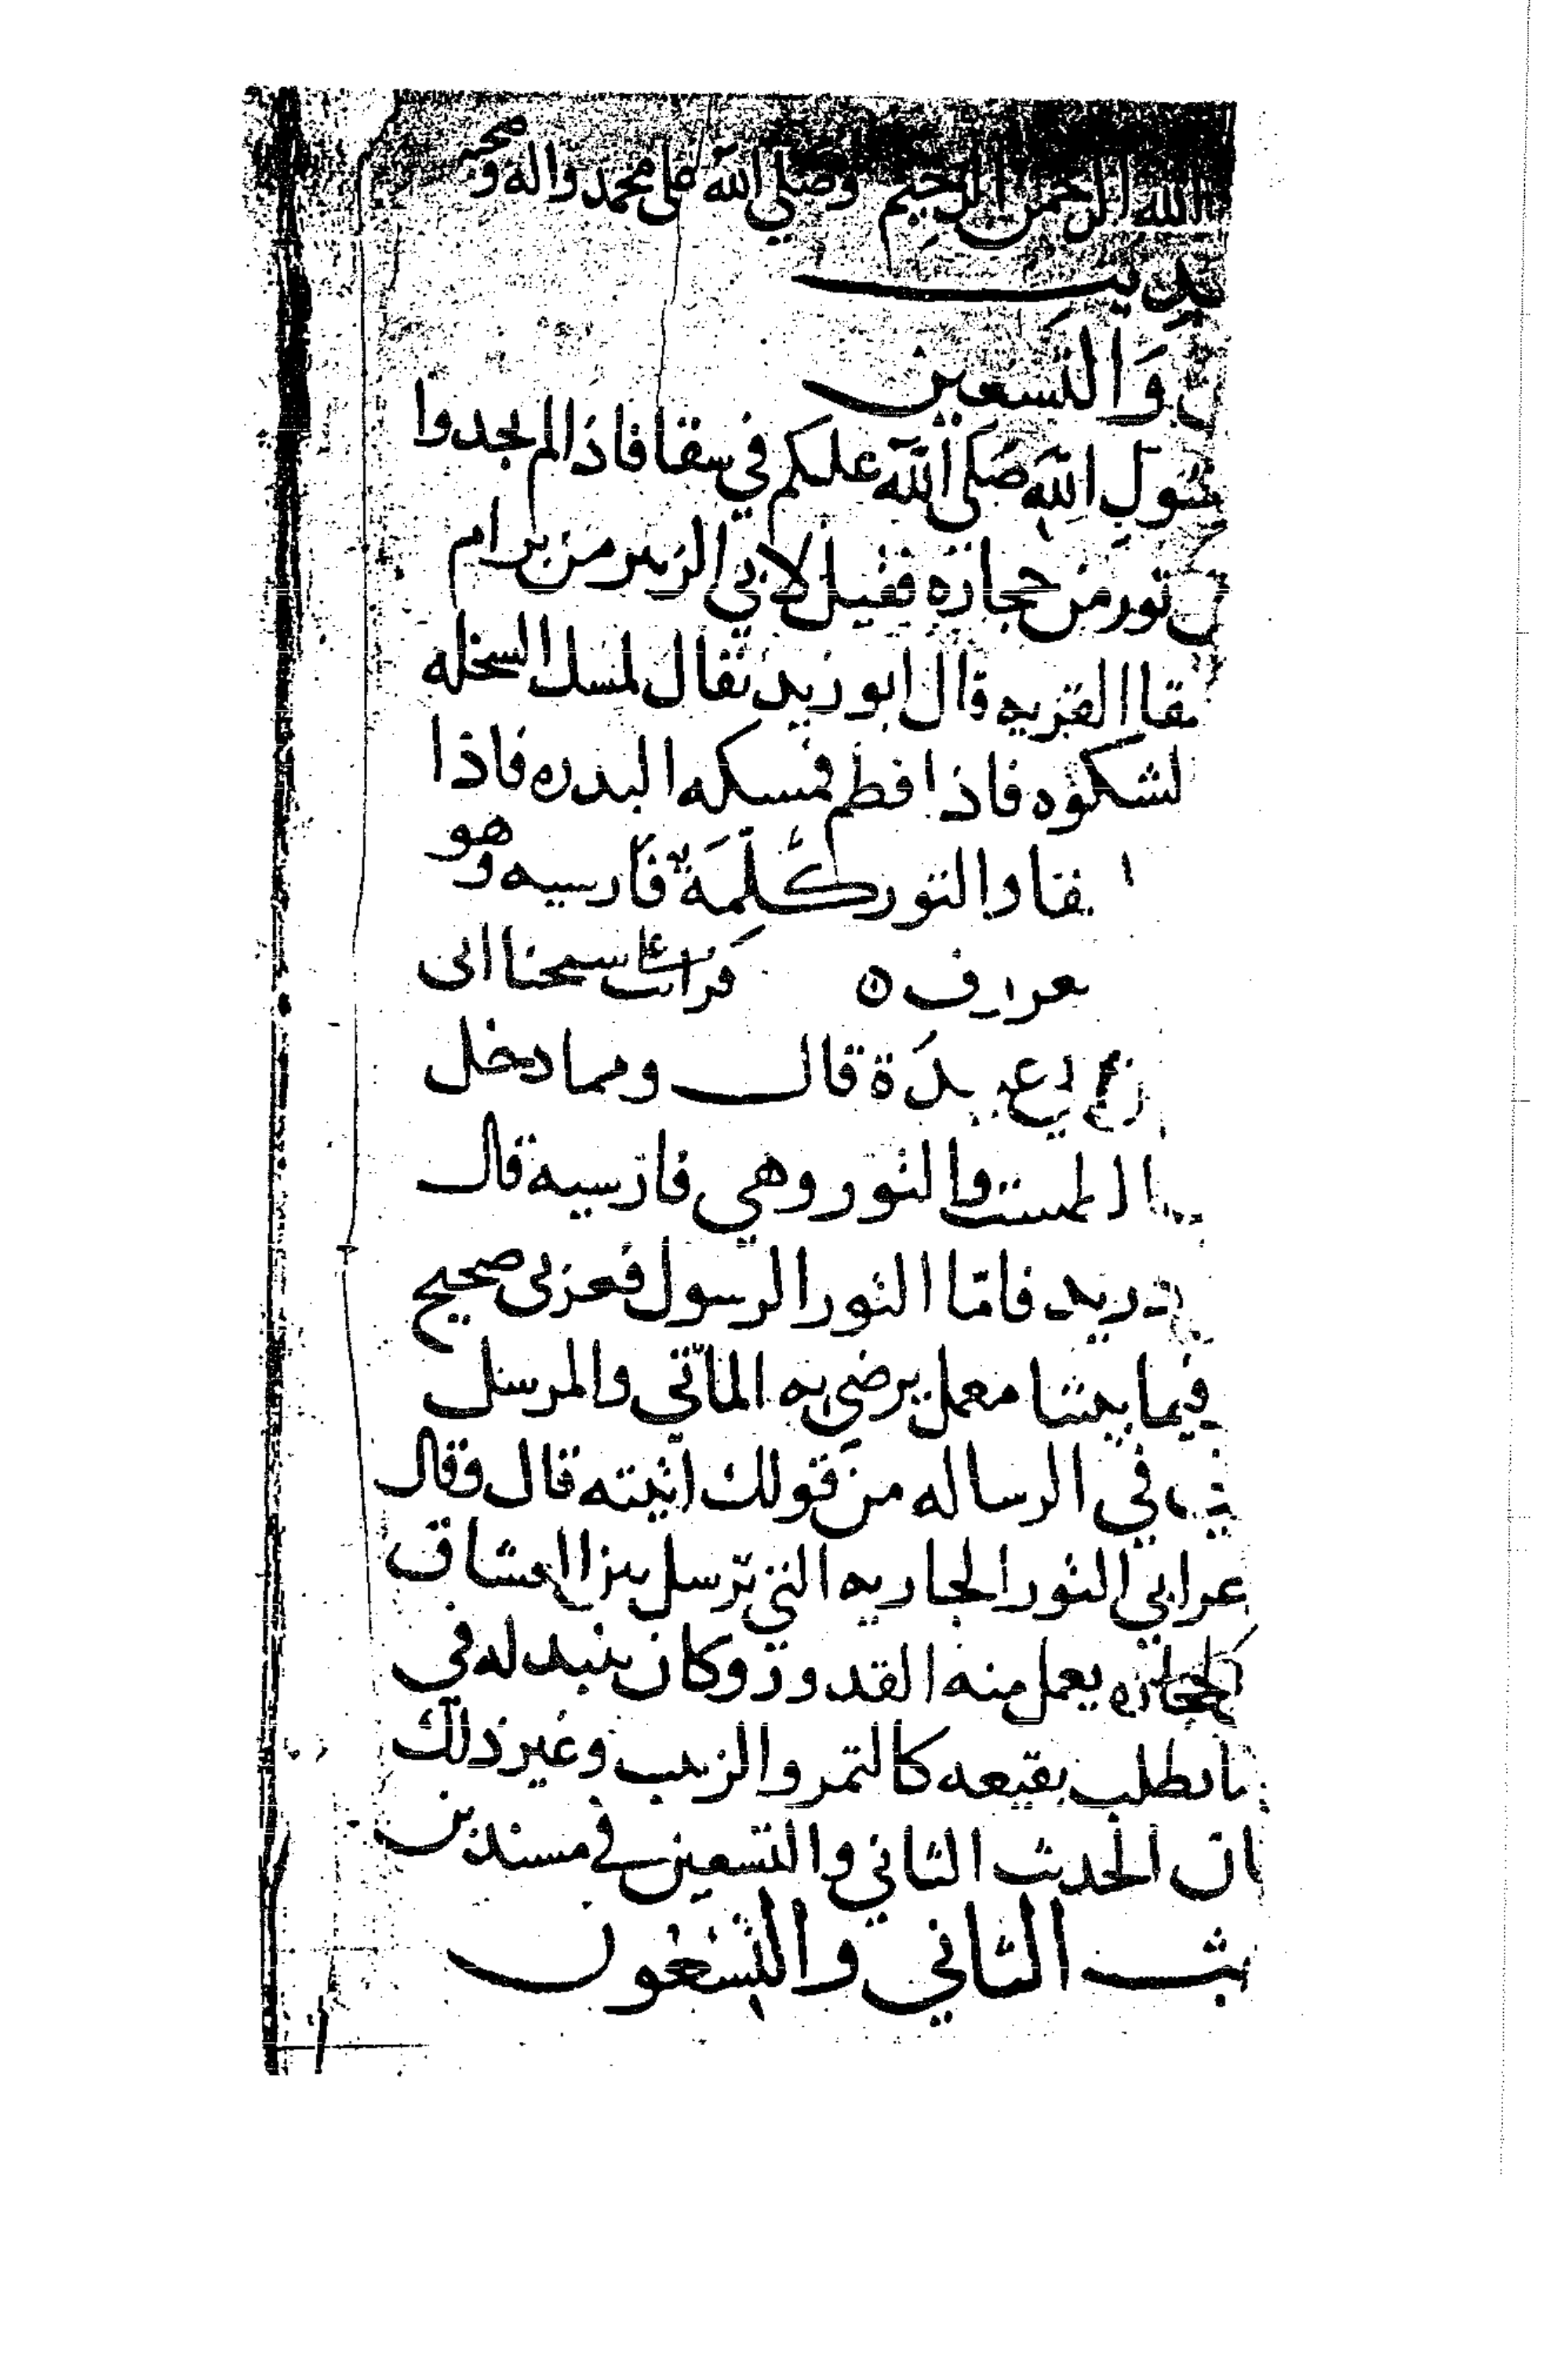 الله الرحمن الرحيم وصلى الله على محمد واله وصحبه
والتسعين
سول الله صلى الله علىكم في سقا فاذا لم يجدوا
تور من حجارة فقيل لابي الزبير من برام
القربه قال ابو زيد تقال لمسك السخله
الشكوه فاذا فطم فمسكه البدره فاذا
والتور كلمة فارسيه وهو
قرات علي شيخنا ابي
قال ومما دخل
الطست والتور وهي فارسيه قال
دريد فاما التور الرسول فعربي صحيح
فيما بيننا معمل يرضى به الماتي والمرسل
في الرساله من قولك اتيته قال وقال
عرابي التور الجاريه التي ترسل بين العشاق
الحجاره يعمل منه القدور وكان ينبد له في
بقيعه كالتمر والزبيب وغير ذلك
الحديث الثاني والتسعين في مسند بن
يث الثاني والتسعون